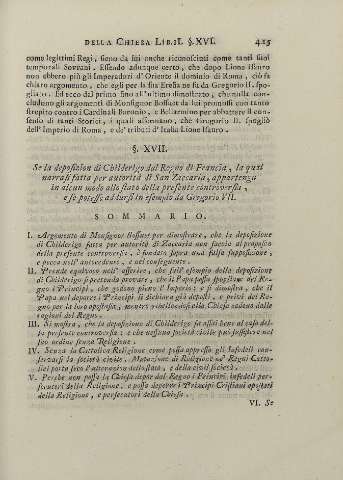 DELLA CHIESA LIB. II. §. XVI. 425
come legittimi Regi, sieno da lui anche riconosciuti come tanti suoi
temporali Sovrani. Essendo adunque certo, che dopo Lione Isauro
non ebbero più gl'Imperadori d'Oriente il dominio di Roma, ciò fa
chiaro argomento, che egli per la sua Eresia ne fu da Gregorio II. spo-
gliato. Ed ecco dal primo sino all'ultimo dimostrato, che nulla con-
cludono gli argomenti di Monsignor Bossuet da lui promossi con tanto
strepito contro i Cardinali Baronio, e Bellarmino per abbattere il con-
senso di tanti Storici, i quali assermano, che Gregorio II. spogliò
dell'Imperio di Roma, e de' tributi d'Italia Lione Isauro.
§. XVII.
Se la deposizion di Childerigo dal Regno di Francia, la qual
narrasi fatta per autorità di San Zaccaria, appartenga
in alcun modo allo stato della presente controversia,
e se potesse addursi in esempio da Gregorio VII.
SOMMARIO.
I. Argomento di Monsignor Bossuet per dimostrare, che la deposizione
di Childerigo fatta per autorità di Zaccaria non faccia al proposito
della presente controversia, è fondato sopra una falsa supposizione,
e pecca nell'antecedente, e nel conseguente.
II. Prende equivoco nell'asserire, che sull'esempio della deposizione
di Childerigo si pretenda provare, che il Papa possa spogliare del Re-
gno i Principi, che godono pieno l'Imperio: e si dimostra, che il
Papa nel deporre i Principi li dichiara già deposti, e privi del Re-
gno per la loro apostasia, mentre a ribellione della Chiesa cadono dalle
ragioni del Regno.
III. Si mostra, che la deposizione di Childerigo fa assai bene al caso del-
la presente controversia: e che nessuna società civile può sussistere nel
suo ordine senza Religione.
IV. Senza la Cattolica Religione come possa appresso gli Infedeli sus-
sistere la società civile. Mutazione di Religione ne' Regni Catto-
lici porta seco l'alterazion dello stato, e della civil società.
V. Perchè non possa la Chiesa depor dal Regno i Principi infedeli per-
secutori della Religione, e possa deporre i Principi Cristiani apostati
della Religione, e persecutori della Chiesa.
VI. Se